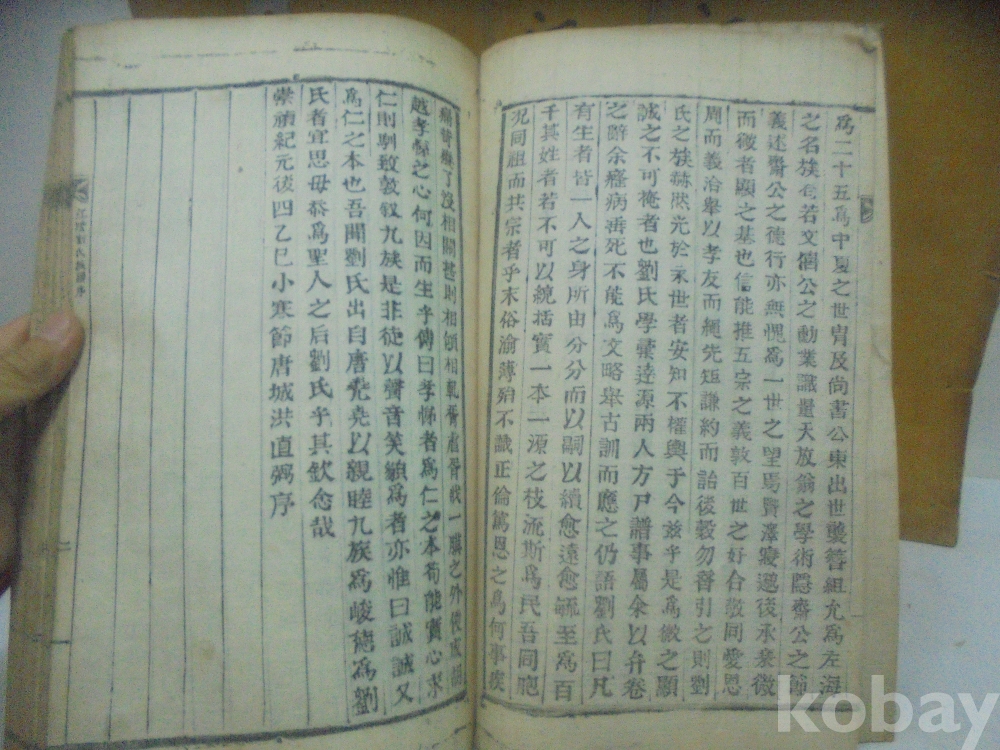 爲二十五爲中夏之世胄及尚書公東出世襲簪組允爲左海
之名族若文僖公之勳業識量天放翁之學術隱齋公之節
義述齋公之德行亦無愧爲一世之望焉賢澤寖邈後承衆微
而微者顯之基也信能推五宗之義敦百世之好合敬同愛恩
周而義洽畢以孝友而繩先矩謙約而詒後穀勿替引之則劉
氏之族赫然光於永世者安知不權輿于今玆乎是爲微之顯
誠之不可掩者也劉氏學達源兩人方尸譜事屬余以弁卷
之辭余癃病垂死不能爲文略舉古訓而應之仍語劉氏曰凡
有生者皆一人之身所由分分而以嗣以續愈遠愈毓至爲百
千其姓者若不可以統括實一本一源之枝流斯爲民吾同胞
况同祖而共宗者乎末俗渝薄殆不識正倫篤恩之爲何事疾
痛苛癢了沒相關甚則相傾相軋一膜之外便成
越孝悌之心何因而生乎傳曰孝悌者爲仁之本苟能實心求
仁則馴致敦敍九族是非徒以聲音笑貌爲者亦惟曰誠誠又
爲仁之本也吾聞劉氏出自唐堯堯以親睦九族爲峻德爲劉
氏者宜思毋忝爲聖人之后劉氏乎其欽念哉
崇禎紀元後四乙巳小寒節唐城洪直弼序
劉氏族譜序
kobay